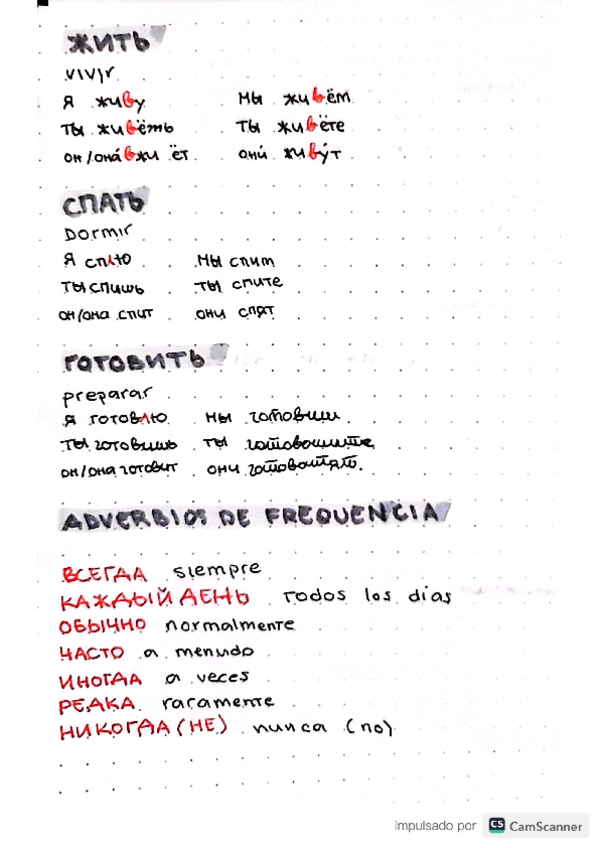 ЖИТЬ
vivir
Я живу мы живём
ты живёть ты живёте
он/она́ вжи ёт они́ живу́т
СПАТЬ
Dormir
Я сплю мы спим
ты спишь ты спите
он/она спит они спят
ГОТОВИТЬ
preparar
Я готовлю мы готовим
ты готовишь ты
он/она готовит они
ADVERBIOS DE FREQUENCIA
ВСЕГДА siempre
КАЖДЫЙ ДЕНЬ todos los días
ОБЫЧНО normalmente
ЧАСТО a menudo
ИНОГДА a veces
РЕДКА raramente
НИКОГДА (НЕ) nunca (no)
impulsado por CS CamScanner